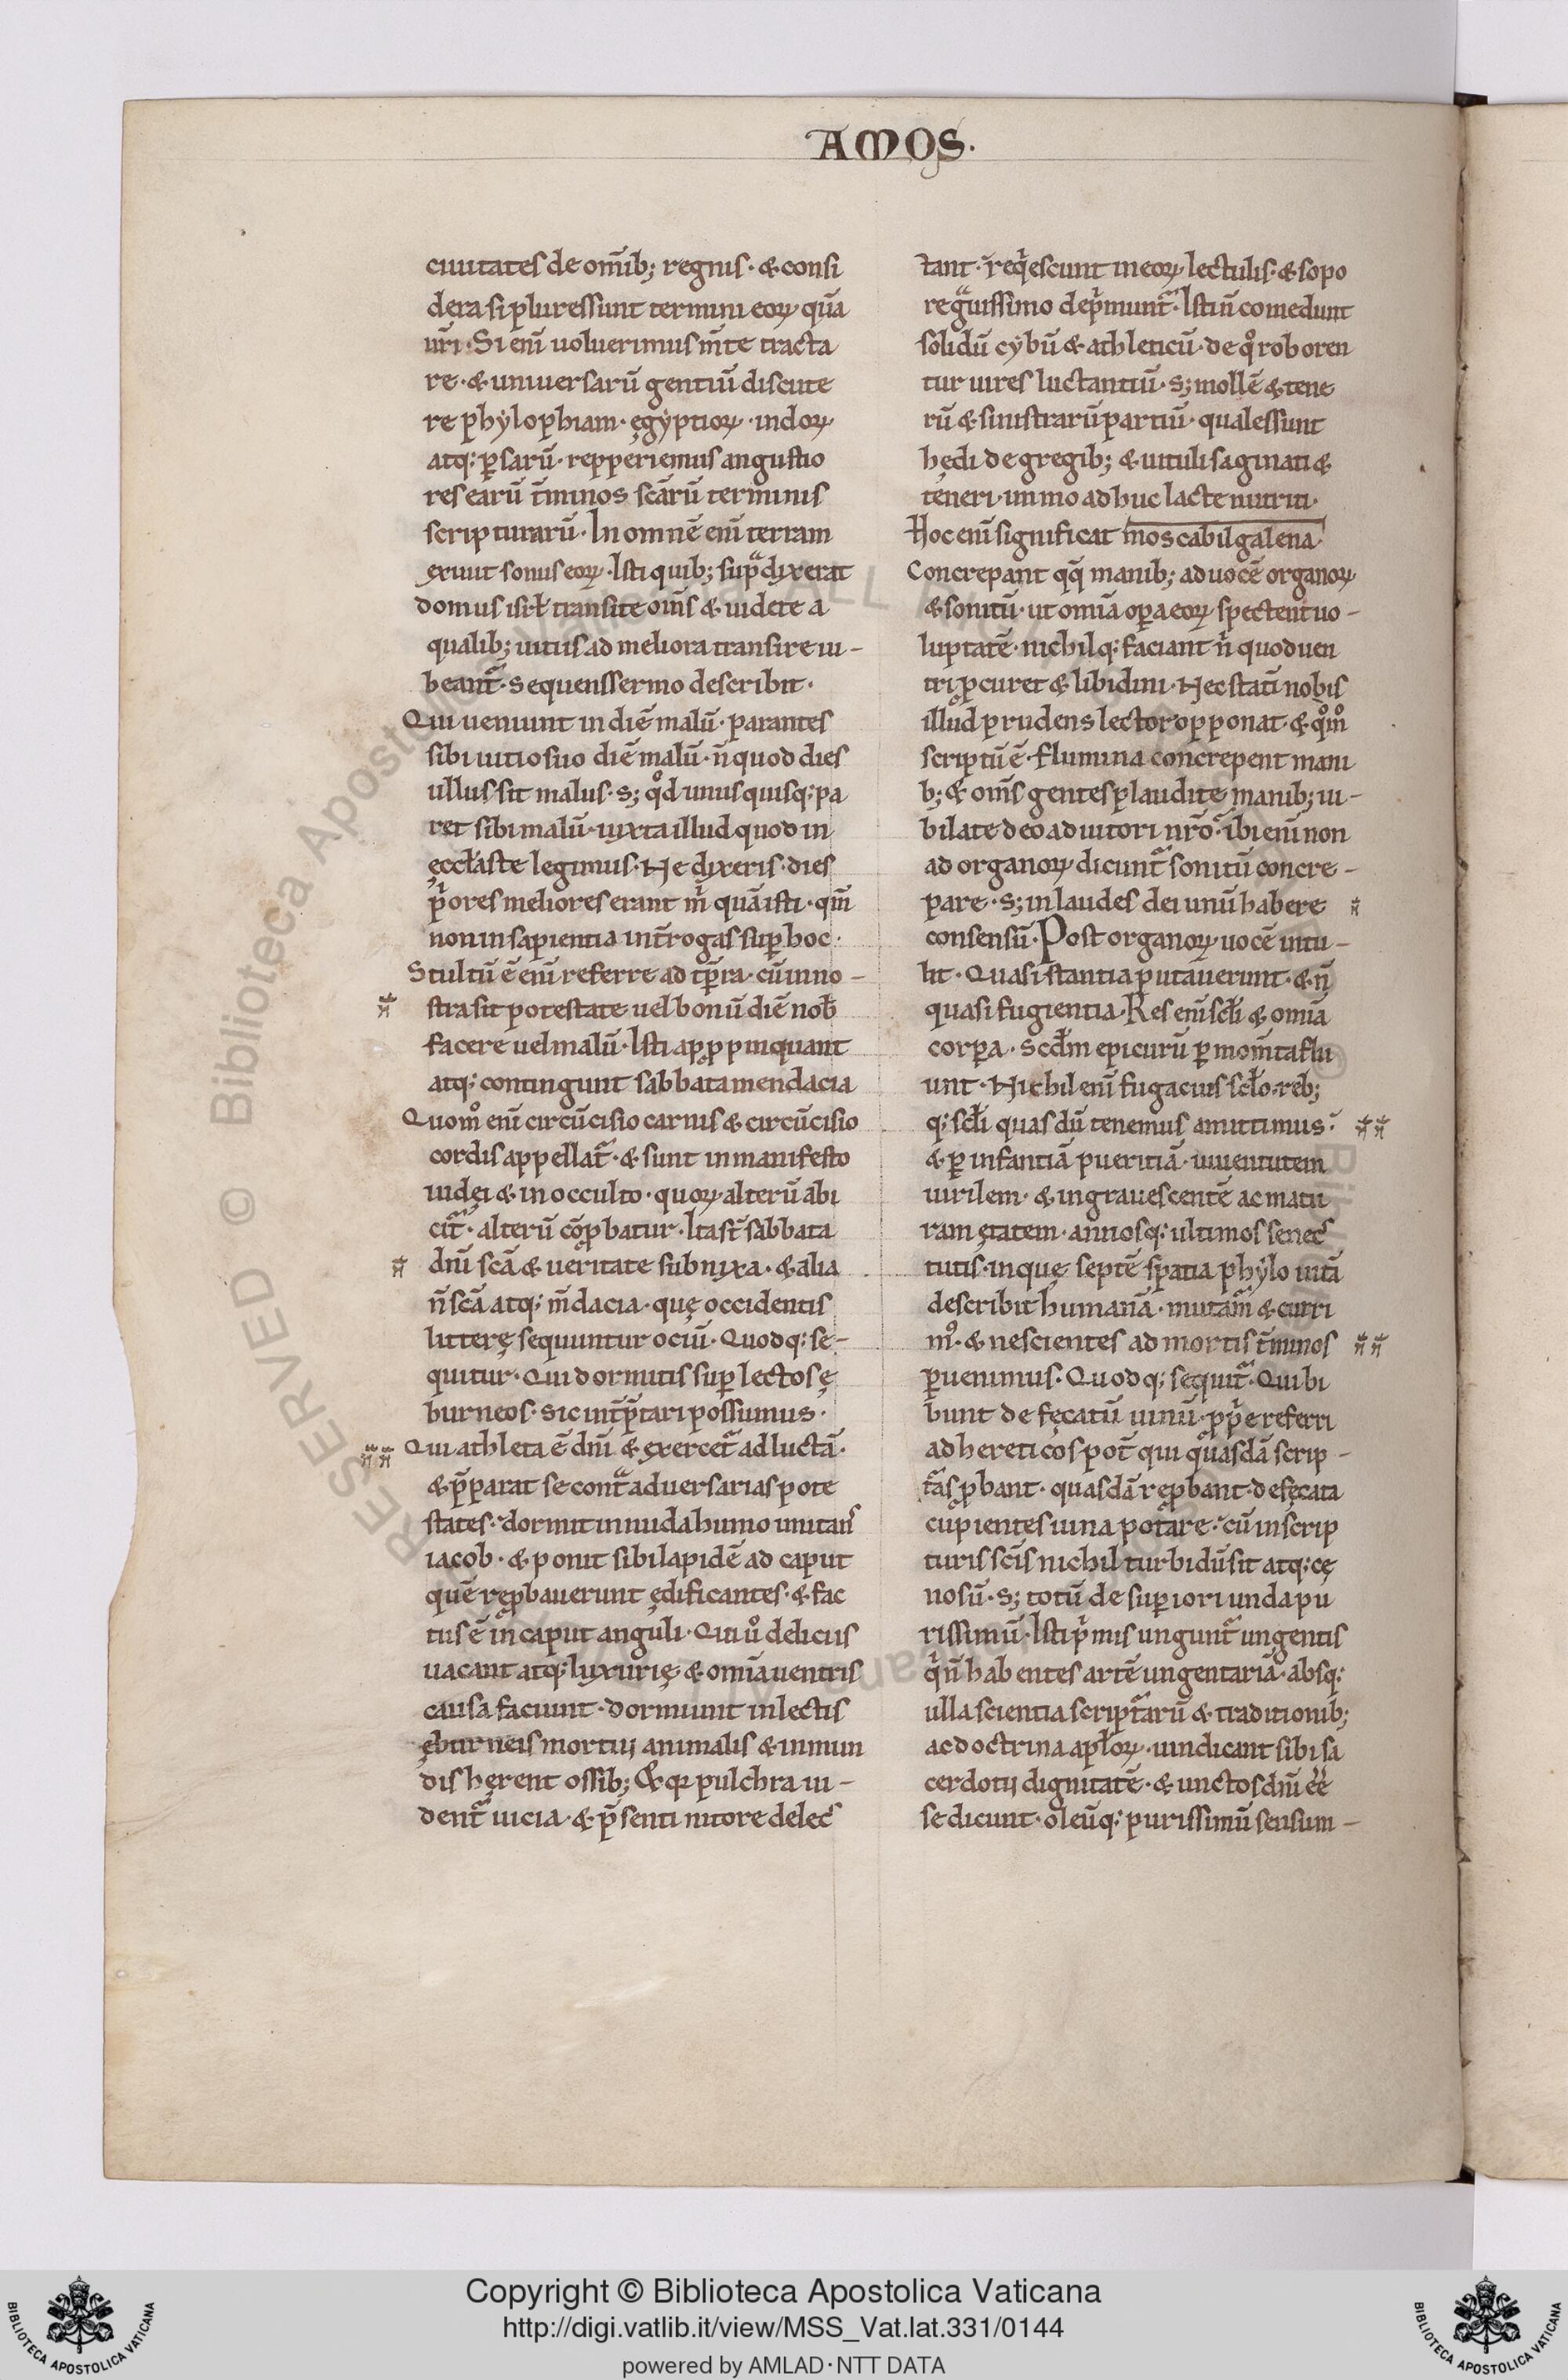 AMOS.
ciuitates de om̄ib; regnis· & consi
dera si pluressunt termini eoꝝ quā
ur̄i· Si eni̅ uoluerimus m̄te tracta
re· & uniuersarū gentiū discute
re phylophiam· ęgyptioꝝ· indoꝝ
atq; ꝑsarū· repperiemus angustio
res earū t̄minos sc̄arū terminis
scripturarū· In omnē eni̅ terram
exiuit sonus eoꝝ· Isti quib; sup̄ dixerat
domus isrł transite om̄s & uidete a
qualib; uitiis ad meliora transire iu-
beant᷑· Sequenssermo describit·
Qui ueniunt in diē malū· parantes
sibi uitio suo diē malū· n̄ quod dies
ullus sit malus· s; qd̊ unusquisq; pa
ret sibi malū· iuxta illud quod in
ęccłaste legimus· Ne dixeris· dies
p̍ores meliores erant m̍ quā isti· qm̄
non in sapientia int̄rogas sup̱ hoc·
Stultū ē eni̅ referre ad tp̄ra· cū in no-
stra sit potestate uel bonū diē nob̄
facere uel malū· Isti apꝓpinquant
atq; contingunt sabbata mendacia
Quom̊ eni̅ circūcisio carnis & circūcisio
cordis appellat᷑· & sunt in manifesto
iudęi & in occulto· quoꝝ alterū abi
cit᷑· alterū cōꝓbatur· Ita st̄ sabbata
dn̄i sc̄a & ueritate subnixa· & alia
n̄ sc̄a atq; m̄dacia· quę occidentis
litterę sequuntur ociū· Quodq; se-
quitur· Qui dormitis suꝑ lectos ę
burneos· sic int̄p̄tari possumus·
Qui athleta ē dn̄i & exercet᷑ ad luctā·
& p̄parat se cont̄ aduersarias pote
states· dormit in nuda humo imitans
iacob· & ponit sibi lapidē ad caput
quē reꝓbauerunt ędificantes· & fac
tus ē in caput anguli· Qui ů deliciis
uacant atq; luxurię· & omīa uentris
causa faciunt· dormiunt in lectis
ęburneis mortui animalis & inmun
dis hęrent ossib; & qꝛ pulchra ui-
dent᷑ uicia· & p̄senti nitore delec
tant· req̍escunt in eoꝝ lectulis· & sopo
re g̃uissimo dep̍munt᷑· Isti n̄ comedunt
solidū cybū & athleticū· de q̊ roboren
tur uires luctantiū· s; mollē & tene
rū & sinistrarū partiū· qualessunt
hędi de gregib; & uituli saginati &
teneri· immo adhuc lacte nutriti·
Hoc eni̅ significat moscabilgalena·
Concrepant qq̄ manib; ad uocē organoꝝ
& sonitū· ut omīa oꝑa eoꝝ spectent uo-
luptatē· nichilq; faciant n̍ quod uen
tri ꝓcuret & libidini· Nec stati̅ nobis
illud prudens lector opponat· & q̊m̊
scriptū ē· flumina concrepent mani
b; & om̄s gentes plaudite manib; iu-
bilate deo adiutori nr̄o· ibi eni̅ non
ad organoꝝ dicunt᷑ sonitū concre-
pare· s; in laudes dei unū habere
consensū· Post organoꝝ uocē intu-
lit· Quasi stantia putauerunt· & n̄
quasi fugientia· Res eni̅ scłi & omīa
corpa· scd̄m epicurū ꝑ mom̄ta flu
unt· Nichil eni̅ fugacius scło· reb;
q; scłi quas dū tenemus amittimus·
& ꝑ infantiā pueritiā· iuuentutem
uirilem· & ingrauescentē ac matu
ram ętatem· annosq; ultimos senec
tutis· inquę septē spatia phylo uitā
describit humanā· mutam̄ & curri
m̊· & nescientes ad mortis t̄minos
ꝑuenimus· Quodq; sequit᷑· Qui bi
bunt defęcatū uinū· ꝓp̍e referri
ad hereticos pot̄ qui quasdā scrip-
t̄as ꝓbant· quasdā reꝓbant· defęcata
cupientes uina potare· cū in scrip
turis sc̄is nichil turbidū sit atq; cę
nosū· s; totū de superiori unda pu
rissimū· Isti p̍mis ungunt᷑ ungentis
q̍ n̄ habentes artē ungentariā· absq;
ulla scientia script̄arū & traditionib;
ac doctrina apłoꝝ· uindicant sibi sa
cerdotij dignitatē· & unctos dn̄i ēe
se dicunt· oleūq; purissimū sensum-
RESERVED © Biblioteca Apostolica Vaticana ALL
Copyright © Biblioteca Apostolica Vaticana
http://digi.vatlib.it/view/MSS_Vat.lat.331/0144
powered by AMLAD·NTT DATA
BIBLIOTECA APOSTOLICA VATICANA
BIBLIOTECA APOSTOLICA VATICANA